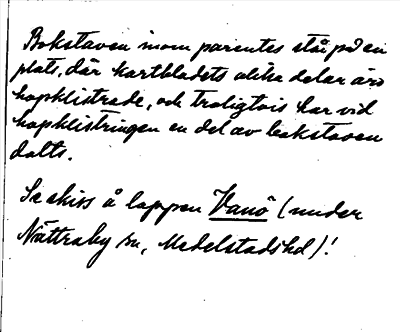 Bokstaven inom parentes står på en
plats, där kartbladets olika delar äro
hopklistrade, och troligtvis har vid
hopklistringen en del av bokstaven
dolts.
Se skiss å lappen Vanö (under
Nättraby sn, Medelstads hd)!